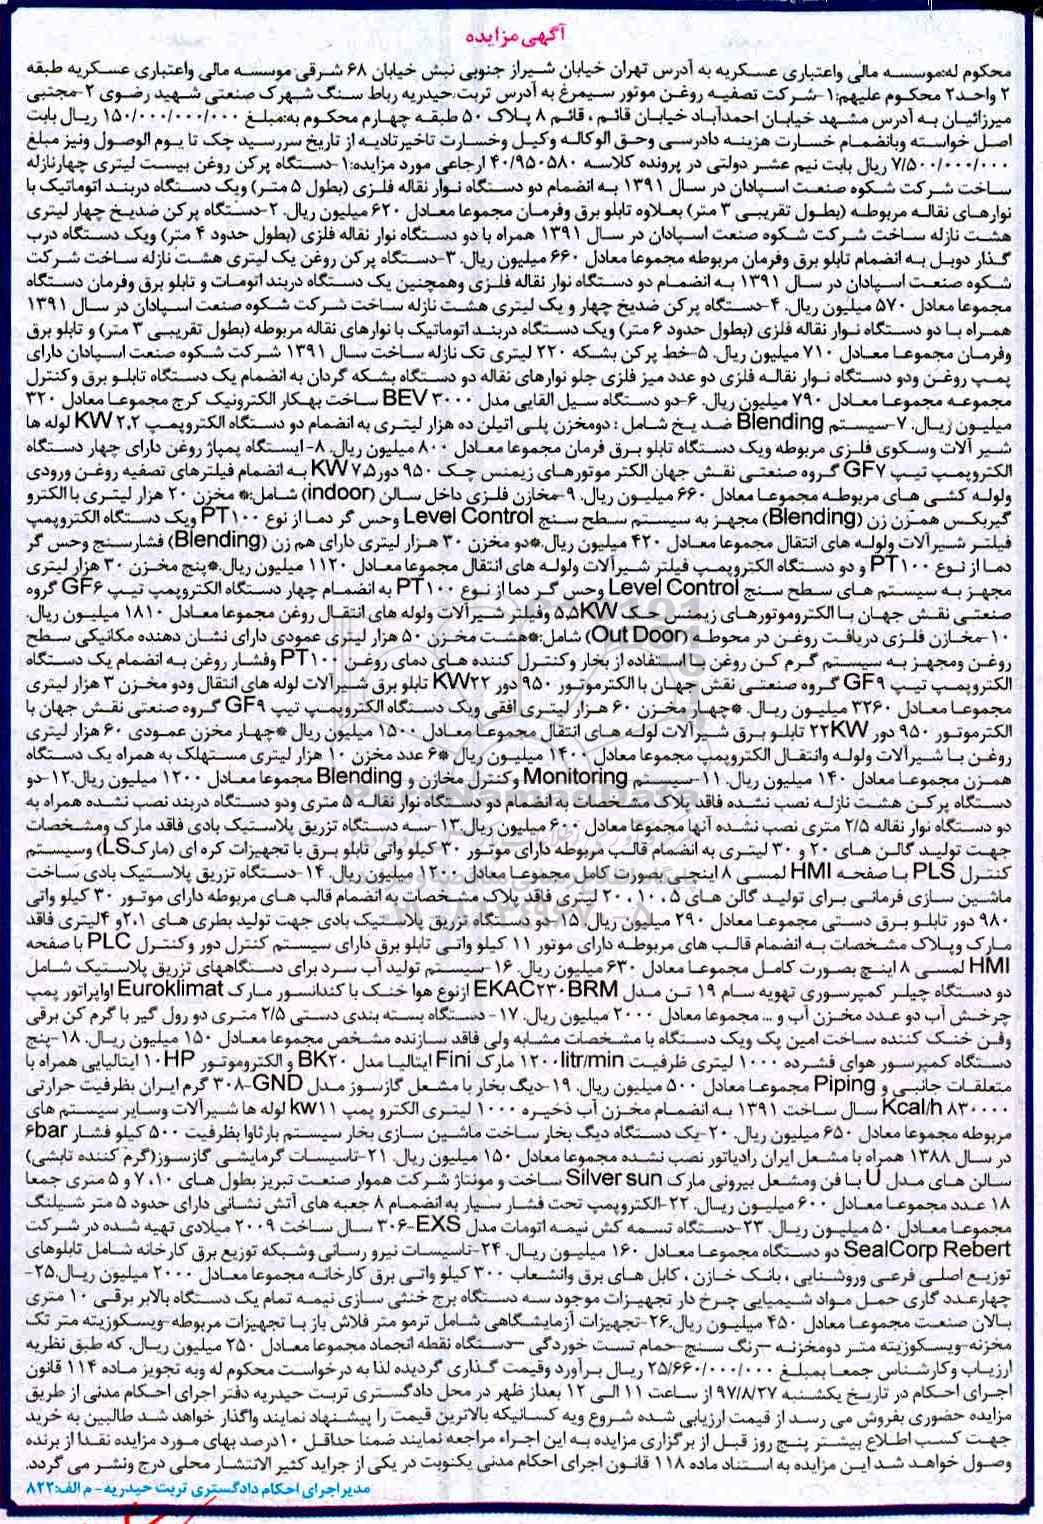 آگهی مزایده
محکوم له:موسسه مالی واعتباری عسکریه به آدرس تهران خیابان شیراز جنوبی نبش خیابان ۶۸ شرقی موسسه مالی واعتباری عسکریه طبقه
۲ واحد۲ محکوم علیهم:۱-شرکت تصفیه روغن موتور سیمرغ به آدرس تربت‌حیدریه رباط سنگ شهرک صنعتی شهید رضوی ۲-مجتبی
میرزائیان به آدرس مشهد خیابان احمدآباد خیابان قائم ، قائم ۸ پلاک ۵۰ طبقه چهارم محکوم به:مبلغ ۱۵۰/۰۰۰/۰۰۰/۰۰۰ ریال بابت
اصل خواسته وبانضمام خسارت هزینه دادرسی وحق الوکاله وکیل وخسارت تاخیرتادیه از تاریخ سررسید چک تا یوم الوصول ونیز مبلغ
۷/۵۰۰/۰۰۰/۰۰۰ ریال بابت نیم عشر دولتی در پرونده کلاسه ۴۰/۹۵۰۵۸۰ ارجاعی مورد مزایده:۱-دستگاه پرکن روغن بیست لیتری چهارنازله
ساخت شرکت شکوه صنعت اسپادان در سال ۱۳۹۱ به انضمام دو دستگاه نوار نقاله فلزی (بطول ۵ متر) ویک دستگاه دربند اتوماتیک با
نوارهای نقاله مربوطه (بطول تقریبی ۳ متر) بعلاوه تابلو برق وفرمان مجموعا معادل ۶۲۰ میلیون ریال. ۲-دستگاه پرکن ضدیخ چهار لیتری
هشت نازله ساخت شرکت شکوه صنعت اسپادان در سال ۱۳۹۱ همراه با دو دستگاه نوار نقاله فلزی (بطول حدود ۴ متر) ویک دستگاه درب
گذار دوبل به انضمام تابلو برق وفرمان مربوطه مجموعا معادل ۶۶۰ میلیون ریال. ۳-دستگاه پرکن روغن یک لیتری هشت نازله ساخت شرکت
شکوه صنعت اسپادان در سال ۱۳۹۱ به انضمام دو دستگاه نوار نقاله فلزی وهمچنین یک دستگاه دربند اتومات و تابلو برق وفرمان دستگاه
مجموعا معادل ۵۷۰ میلیون ریال. ۴-دستگاه پرکن ضدیخ چهار و یک لیتری هشت نازله ساخت شرکت شکوه صنعت اسپادان در سال ۱۳۹۱
همراه با دو دستگاه نوار نقاله فلزی (بطول حدود ۶ متر) ویک دستگاه دربند اتوماتیک با نوارهای نقاله مربوطه (بطول تقریبی ۳ متر) و تابلو برق
وفرمان مجموعا معادل ۷۱۰ میلیون ریال. ۵-خط پرکن بشکه ۲۲۰ لیتری تک نازله ساخت سال ۱۳۹۱ شرکت شکوه صنعت اسپادان دارای
پمپ روغن ودو دستگاه نوار نقاله فلزی دو عدد میز فلزی جلو نوارهای نقاله دو دستگاه بشکه گردان به انضمام یک دستگاه تابلو برق وکنترل
مجموعه مجموعا معادل ۷۹۰ میلیون ریال. ۶-دو دستگاه سیل القایی مدل BEV ۳۰۰۰ ساخت بهکار الکترونیک کرج مجموعا معادل ۳۲۰
میلیون ریال. ۷-سیستم Blending ضد یخ شامل : دومخزن پلی اتیلن ده هزار لیتری به انضمام دو دستگاه الکتروپمپ KW ۲,۲ لوله ها
شیر آلات وسکوی فلزی مربوطه ویک دستگاه تابلو برق فرمان مجموعا معادل ۸۰۰ میلیون ریال. ۸-ایستگاه پمپاژ روغن دارای چهار دستگاه
الکتروپمپ تیپ GF۷ گروه صنعتی نقش جهان الکتر موتورهای زیمنس چک ۹۵۰ دور KW ۷,۵ به انضمام فیلترهای تصفیه روغن ورودی
ولوله کشی های مربوطه مجموعا معادل ۶۶۰ میلیون ریال. ۹-مخازن فلزی داخل سالن (indoor) شامل:* مخزن ۲۰ هزار لیتری با الکترو
گیربکس همزن زن (Blending) مجهز به سیستم سطح سنج Level Control وحس گر دما از نوع PT۱۰۰ ویک دستگاه الکتروپمپ
فیلتر شیرآلات ولوله های انتقال مجموعا معادل ۴۲۰ میلیون ریال.*دو مخزن ۳۰ هزار لیتری دارای هم زن (Blending) فشارسنج وحس گر
دما از نوع PT۱۰۰ و دو دستگاه الکتروپمپ فیلتر شیرآلات ولوله های انتقال مجموعا معادل ۱۱۲۰ میلیون ریال.*پنج مخزن ۳۰ هزار لیتری
مجهز به سیستم های سطح سنج Level Control وحس گر دما از نوع PT۱۰۰ به انضمام چهار دستگاه الکتروپمپ تیپ GF۶ گروه
صنعتی نقش جهان با الکتروموتورهای زیمنس چک ۵,۵KW وفیلتر شیرآلات ولوله های انتقال روغن مجموعا معادل ۱۸۱۰ میلیون ریال.
۱۰-مخازن فلزی دریافت روغن در محوطه (Out Door) شامل:*هشت مخزن ۵۰ هزار لیتری عمودی دارای نشان دهنده مکانیکی سطح
روغن ومجهز به سیستم گرم کن روغن با استفاده از بخار وکنترل کننده های دمای روغن PT۱۰۰ وفشار روغن به انضمام یک دستگاه
الکتروپمپ تیپ GF۹ گروه صنعتی نقش جهان با الکترموتور ۹۵۰ دور KW۲۲ تابلو برق شیرآلات لوله های انتقال ودو مخزن ۳ هزار لیتری
مجموعا معادل ۳۲۶۰ میلیون ریال. *چهار مخزن ۶۰ هزار لیتری افقی ویک دستگاه الکتروپمپ تیپ GF۹ گروه صنعتی نقش جهان با
الکترموتور ۹۵۰ دور ۲۲KW تابلو برق شیرآلات لوله های انتقال مجموعا معادل ۱۵۰۰ میلیون ریال *چهار مخزن عمودی ۶۰ هزار لیتری
روغن با شیرآلات ولوله وانتقال الکتروپمپ مجموعا معادل ۱۴۰۰ میلیون ریال *۶ عدد مخزن ۱۰ هزار لیتری مستهلک به همراه یک دستگاه
همزن مجموعا معادل ۱۴۰ میلیون ریال. ۱۱-سیستم Monitoring وکنترل مخازن و Blending مجموعا معادل ۱۲۰۰ میلیون ریال.۱۲-دو
دستگاه پرکن هشت نازله نصب نشده فاقد پلاک مشخصات به انضمام دو دستگاه نوار نقاله ۵ متری ودو دستگاه دربند نصب نشده همراه به
دو دستگاه نوار نقاله ۲/۵ متری نصب نشده آنها مجموعا معادل ۶۰۰ میلیون ریال.۱۳-سه دستگاه تزریق پلاستیک بادی فاقد مارک ومشخصات
جهت تولید گالن های ۲۰ و ۳۰ لیتری به انضمام قالب مربوطه دارای موتور ۳۰ کیلو واتی تابلو برق با تجهیزات کره ای (مارکLS) وسیستم
کنترل PLS با صفحه HMI لمسی ۸ اینچی بصورت کامل مجموعا معادل ۱۲۰۰ میلیون ریال. ۱۴-دستگاه تزریق پلاستیک بادی ساخت
ماشین سازی فرمانی برای تولید گالن های ۵ ، ۱۰ ، ۲۰ لیتری فاقد پلاک مشخصات به انضمام قالب های مربوطه دارای موتور ۳۰ کیلو واتی
۹۸۰ دور تابلو برق دستی مجموعا معادل ۲۹۰ میلیون ریال.۱۵-دو دستگاه تزریق پلاستیک بادی جهت تولید بطری های ۲،۱و ۴لیتری فاقد
مارک وپلاک مشخصات به انضمام قالب های مربوطه دارای موتور ۱۱ کیلو واتی تابلو برق دارای سیستم کنترل دور وکنترل PLC با صفحه
HMI لمسی ۸ اینچ بصورت کامل مجموعا معادل ۶۳۰ میلیون ریال. ۱۶-سیستم تولید آب سرد برای دستگاههای تزریق پلاستیک شامل
دو دستگاه چیلر کمپرسوری تهویه سام ۱۹ تن مدل EKAC۲۳۰BRM ازنوع هوا خنک با کندانسور مارک Euroklimat اواپراتور پمپ
چرخش آب دو عدد مخزن آب و ... مجموعا معادل ۲۰۰۰ میلیون ریال. ۱۷- دستگاه بسته بندی دستی ۲/۵ متری دو رول گیر با گرم کن برقی
وفن خنک کننده ساخت امین پک ویک دستگاه با مشخصات مشابه ولی فاقد سازنده مشخص مجموعا معادل ۱۵۰ میلیون ریال. ۱۸-پنج
دستگاه کمپرسور هوای فشرده ۱۰۰۰ لیتری ظرفیت ۱۲۰۰litr/min مارک Fini ایتالیا مدل BK۲۰ و الکتروموتور ۱۰HP ایتالیایی همراه با
متعلقات جانبی و Piping مجموعا معادل ۵۰۰ میلیون ریال. ۱۹-دیگ بخار با مشعل گازسوز مدل ۳۰۸-GND گرم ایران بظرفیت حرارتی
۸۳۰۰۰۰ Kcal/h سال ساخت ۱۳۹۱ به انضمام مخزن آب ذخیره ۱۰۰۰ لیتری الکترو پمپ kw۱۱ لوله ها شیرآلات وسایر سیستم های
مربوطه مجموعا معادل ۶۵۰ میلیون ریال. ۲۰-یک دستگاه دیگ بخار ساخت ماشین سازی بخار سیستم بارثاوا بظرفیت ۵۰۰ کیلو فشار ۶bar
در سال ۱۳۸۸ همراه با مشعل ایران رادیاتور نصب نشده مجموعا معادل ۱۵۰ میلیون ریال. ۲۱-تاسیسات گرمایشی گازسوز(گرم کننده تابشی)
سالن های مدل U با فن ومشعل بیرونی مارک Silver sun ساخت و مونتاژ شرکت هموار صنعت تبریز بطول های ۱۰، ۷ و ۵ متری جمعا
۱۸ عدد مجموعا معادل ۶۰۰ میلیون ریال. ۲۲-الکتروپمپ تحت فشار سیار به انضمام ۸ جعبه های آتش نشانی دارای حدود ۵ متر شیلنگ
مجموعا معادل ۵۰ میلیون ریال. ۲۳-دستگاه تسمه کش نیمه اتومات مدل ۳۰۶-EXS سال ساخت ۲۰۰۹ میلادی تهیه شده در شرکت
SealCorp Rebert دو دستگاه مجموعا معادل ۱۶۰ میلیون ریال. ۲۴-تاسیسات نیرو رسانی وشبکه توزیع برق کارخانه شامل تابلوهای
توزیع اصلی فرعی وروشنایی ، بانک خازن ، کابل های برق وانشعاب ۳۰۰ کیلو واتی برق کارخانه مجموعا معادل ۲۰۰۰ میلیون ریال.۲۵-
چهارعدد گاری حمل مواد شیمیایی چرخ دار تجهیزات موجود سه دستگاه برج خنثی سازی نیمه تمام یک دستگاه بالابر برقی ۱۰ متری
بالان صنعت مجموعا معادل ۴۵۰ میلیون ریال.۲۶-تجهیزات آزمایشگاهی شامل ترمو متر فلاش باز با تجهیزات مربوطه-ویسکوزیته متر تک
مخزنه-ویسکوزیته متر دومخزنه –رنگ سنج-حمام تست خوردگی –دستگاه نقطه انجماد مجموعا معادل ۲۵۰ میلیون ریال. که طبق نظریه
ارزیاب وکارشناس جمعا بمبلغ ۲۵/۶۶۰/۰۰۰/۰۰۰ ریال برآورد وقیمت گذاری گردیده لذا به درخواست محکوم له وبه تجویز ماده ۱۱۴ قانون
اجرای احکام در تاریخ یکشنبه ۹۷/۸/۲۷ از ساعت ۱۱ الی ۱۲ بعداز ظهر در محل دادگستری تربت حیدریه دفتر اجرای احکام مدنی از طریق
مزایده حضوری بفروش می رسد از قیمت ارزیابی شده شروع وبه کسانیکه بالاترین قیمت را پیشنهاد نمایند واگذار خواهد شد طالبین به خرید
جهت کسب اطلاع بیشتر پنج روز قبل از برگزاری مزایده به این اجراء مراجعه نمایند ضمنا حداقل ۱۰درصد بهای مورد مزایده نقدا از برنده
وصول خواهد شد این مزایده به استناد ماده ۱۱۸ قانون اجرای احکام مدنی یکنوبت در یکی از جراید کثیر الانتشار محلی درج ونشر می گردد.
مدیر اجرای احکام دادگستری تربت حیدریه - م الف:۸۲۲